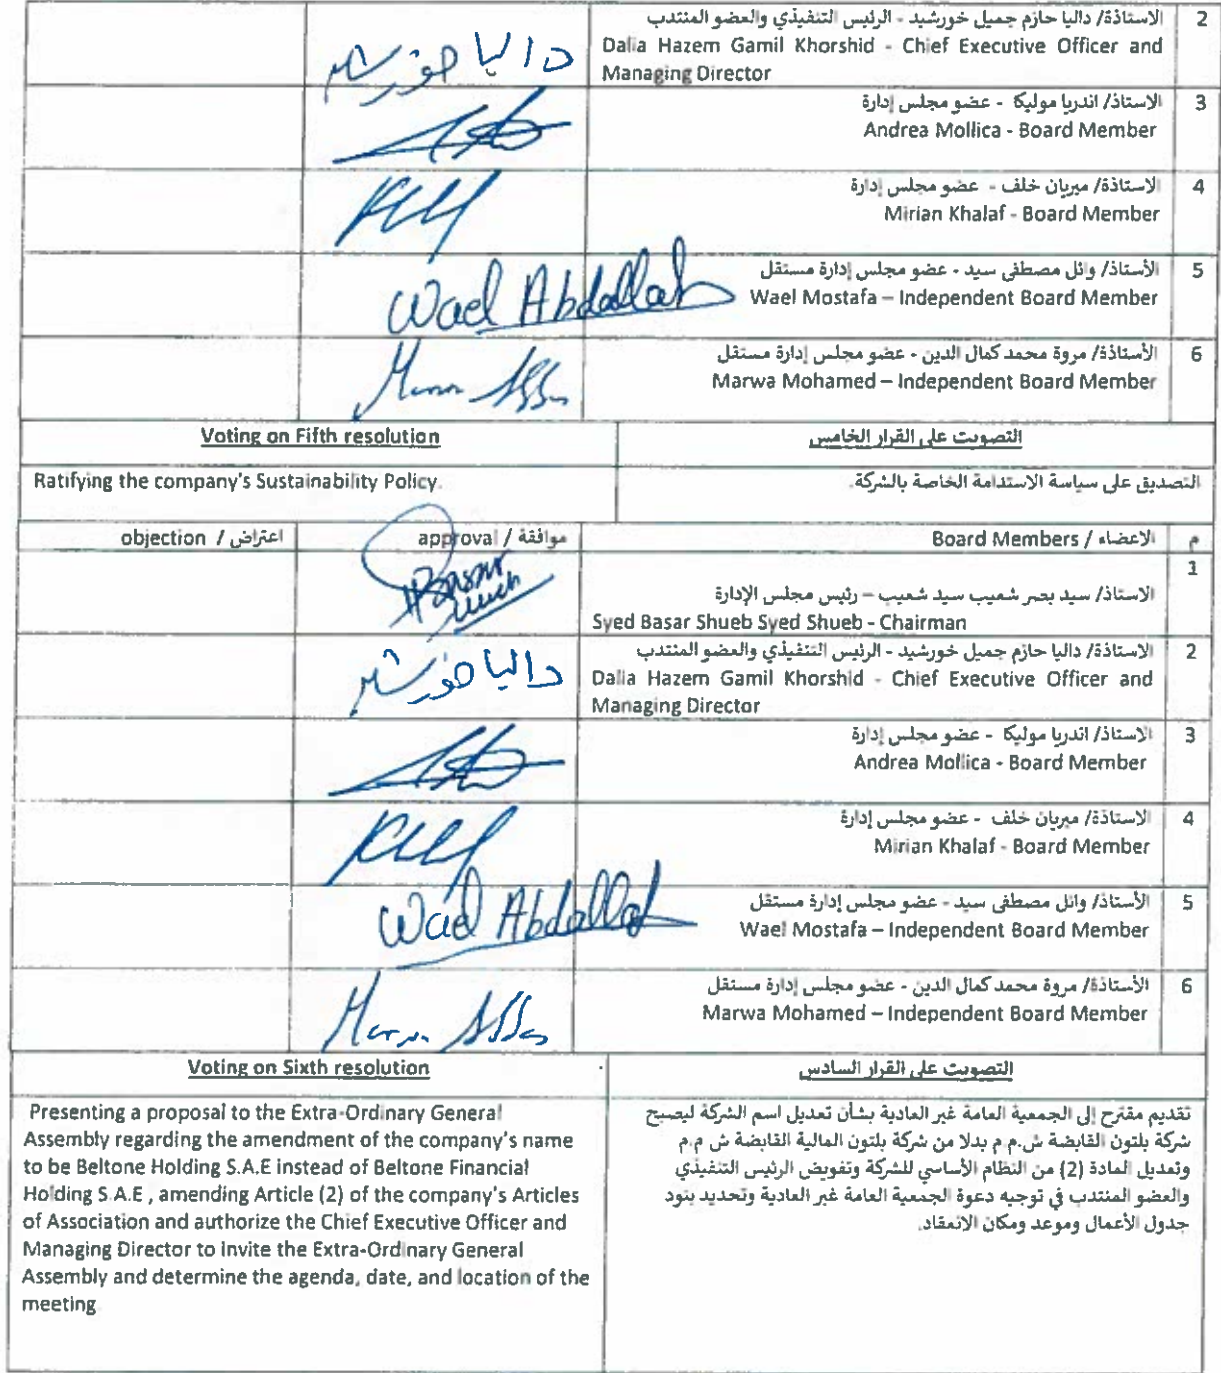 2
الاستاذة/ داليا حازم جميل خورشيد - الرئيس التنفيذي والعضو المنتدب
Dalia Hazem Gamil Khorshid - Chief Executive Officer and
Managing Director
داليا خورشيد
3
الاستاذ/ اندريا موليكا - عضو مجلس إدارة
Andrea Mollica - Board Member
4
الاستاذة/ ميريان خلف - عضو مجلس إدارة
Mirian Khalaf - Board Member
5
الأستاذ/ وائل مصطفى سيد - عضو مجلس إدارة مستقل
Wael Mostafa – Independent Board Member
Wael Abdallah
6
الأستاذة/ مروة محمد كمال الدين - عضو مجلس إدارة مستقل
Marwa Mohamed – Independent Board Member
Voting on Fifth resolution
التصويت على القرار الخامس
Ratifying the company's Sustainability Policy.
التصديق على سياسة الاستدامة الخاصة بالشركة.
اعتراض / objection
موافقة / approval
الاعضاء / Board Members
م
1
الاستاذ/ سيد بصر شعيب سيد شعيب – رئيس مجلس الإدارة
Syed Basar Shueb Syed Shueb - Chairman
Basar
2
الاستاذة/ داليا حازم جميل خورشيد - الرئيس التنفيذي والعضو المنتدب
Dalia Hazem Gamil Khorshid - Chief Executive Officer and
Managing Director
داليا خورشيد
3
الاستاذ/ اندريا موليكا - عضو مجلس إدارة
Andrea Mollica - Board Member
4
الاستاذة/ ميريان خلف - عضو مجلس إدارة
Mirian Khalaf - Board Member
5
الأستاذ/ وائل مصطفى سيد - عضو مجلس إدارة مستقل
Wael Mostafa – Independent Board Member
Wael Abdallah
6
الأستاذة/ مروة محمد كمال الدين - عضو مجلس إدارة مستقل
Marwa Mohamed – Independent Board Member
Voting on Sixth resolution
التصويت على القرار السادس
Presenting a proposal to the Extra-Ordinary General
Assembly regarding the amendment of the company's name
to be Beltone Holding S.A.E instead of Beltone Financial
Holding S.A.E , amending Article (2) of the company's Articles
of Association and authorize the Chief Executive Officer and
Managing Director to invite the Extra-Ordinary General
Assembly and determine the agenda, date, and location of the
meeting
تقديم مقترح إلى الجمعية العامة غير العادية بشأن تعديل اسم الشركة ليصبح
شركة بلتون القابضة ش.م.م بدلا من شركة بلتون المالية القابضة ش.م.م
وتعديل المادة (2) من النظام الأساسي للشركة وتفويض الرئيس التنفيذي
والعضو المنتدب في توجيه دعوة الجمعية العامة غير العادية وتحديد بنود
جدول الأعمال وموعد ومكان الانعقاد.